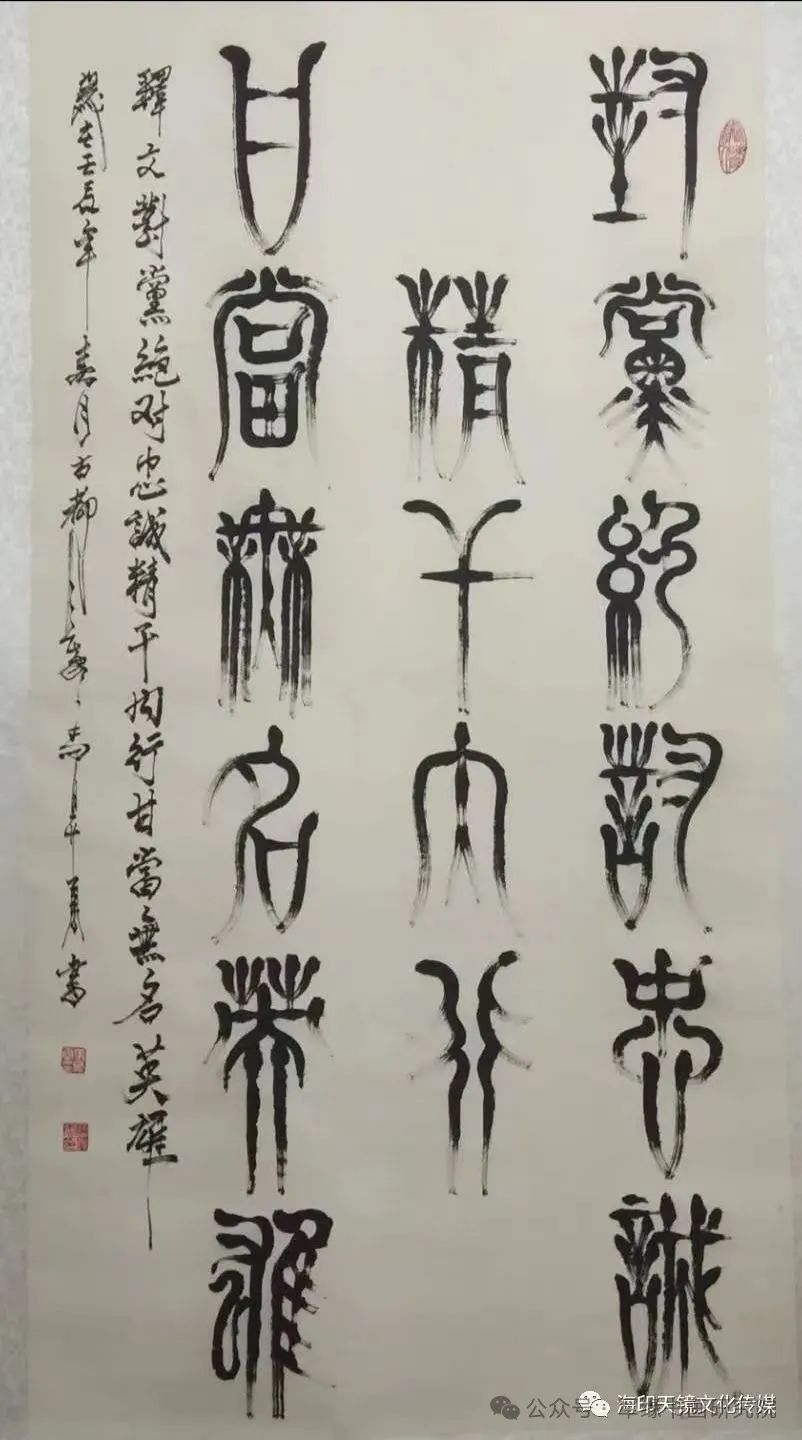 對黨絕對忠誠
精干內行
甘當無名英雄
釋文對黨絕对忠誠精干內行甘當無名英雄
歲在壬辰年春月古都
公众号
海印天镜文化传媒